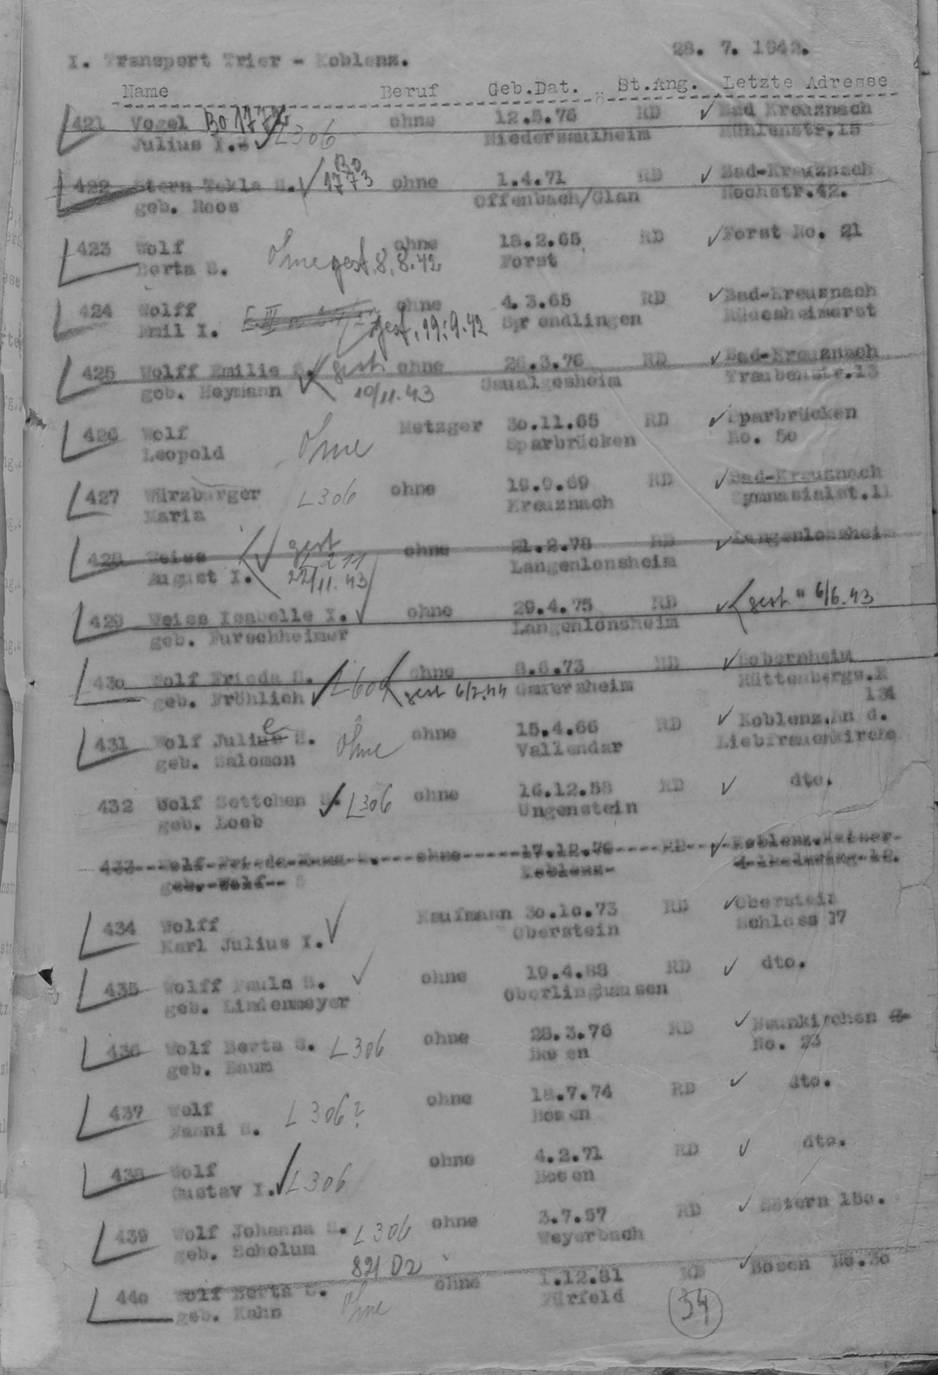 I. Transport Trier - Koblenz. 28. 7. 1942.
Name Beruf Geb.Dat. St.Ang. Letzte Adresse
421 Vogel Bo 1772 ohne 12.5.76 RD ✓ Bad Kreuznach
Julius I. ✓ L306 Niedersaulheim Mühlenstr.15
422 Stern Tekla S. ✓ Bo 1773 ohne 1.4.71 RD ✓ Bad-Kreuznach
geb. Roos Offenbach/Glan Hochstr.42.
423 Wolf ohne 18.2.65 RD ✓ Forst No. 21
Berta S. Ohne gest. 8.8.42 Forst
424 Wolff ohne 4.3.65 RD ✓ Bad-Kreuznach
Emil I. gest. 19.9.42 Spr endlingen
425 Wolff Emilie S. gest. ohne 26.3.76 RD ✓ Bad-Kreuznach
geb. Heymann 10/11.43 Gaualgesheim Traubenstr.13
426 Wolf Metzger 30.11.65 RD ✓ Sparbrücken
Leopold Ohne Sparbrücken No. 50
427 Würzburger L306 ohne 19.9.69 RD ✓ Bad-Kreuznach
Maria Kreuznach Gymnasialst.11
428 Weiss ✓ gest ohne 21.2.78 RD ✓ Langenlonsheim
August I. 22/11.43 Langenlonsheim
429 Weiss Isabelle I. ✓ ohne 29.4.75 RD ✓ gest " 6/6.43
geb. Furschheimer Langenlonsheim
430 Wolf Frieda S. ohne 8.6.73 RD ✓ Sobernheim
geb. Fröhlich ✓ gest 6/2.44 Hüttenbergs.
134
431 Wolf Julie S. ohne 15.4.66 RD ✓ Koblenz.An d.
geb. Salomon Ohne Vallendar Liebfrauenkirche
432 Wolf Settchen S. ✓ L306 ohne 16.12.58 RD ✓ dto.
geb. Loeb Ungenstein
433 Wolf Frieda ohne 17.12.76 RD ✓ Koblenz.
geb. Wolf Koblenz
434 Wolff Kaufmann 30.10.73 RD ✓ Oberstein
Karl Julius I. ✓ Oberstein Schloss 17
435 Wolff Paula S. ✓ ohne 19.4.88 RD ✓ dto.
geb. Lindenmeyer Oberlinghausen
436 Wolf Berta S. L306 ohne 28.3.76 RD ✓ Neunkirchen
geb. Baum Bosen No. 23
437 Wolf L306? ohne 18.7.74 RD ✓ dto.
Fanni S. Bosen
438 Wolf ohne 4.2.71 RD ✓ dto.
Gustav I. ✓ L306 Bosen
439 Wolf Johanna S. L306 ohne 3.7.57 RD ✓ Sötern 150.
geb. Scholum Weyerbach
821 D2
440 Wolf Berta S. ohne 1.12.81 RD ✓ Bosen No.30
geb. Kahn Ohne Fürfeld 34